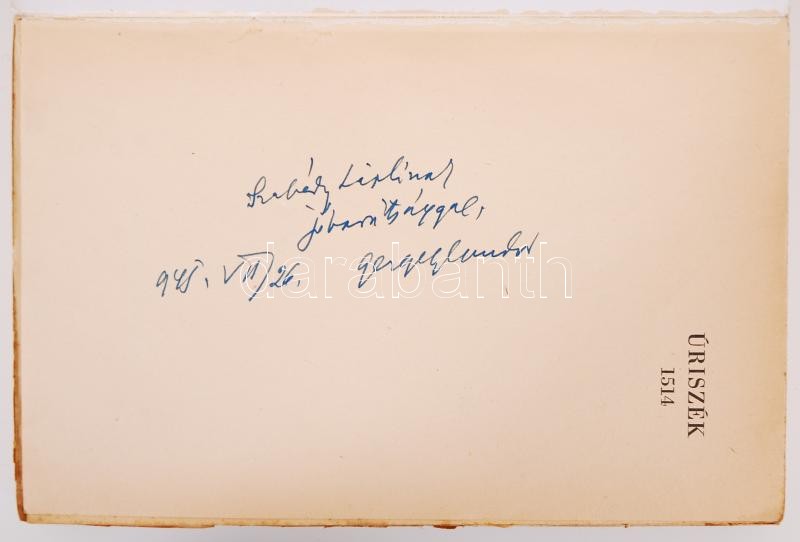 Szabády Lászlónak
jóbarátsággal,
945. VII/26. Gergely Sándor
darabanth
ÚRISZÉK
1514